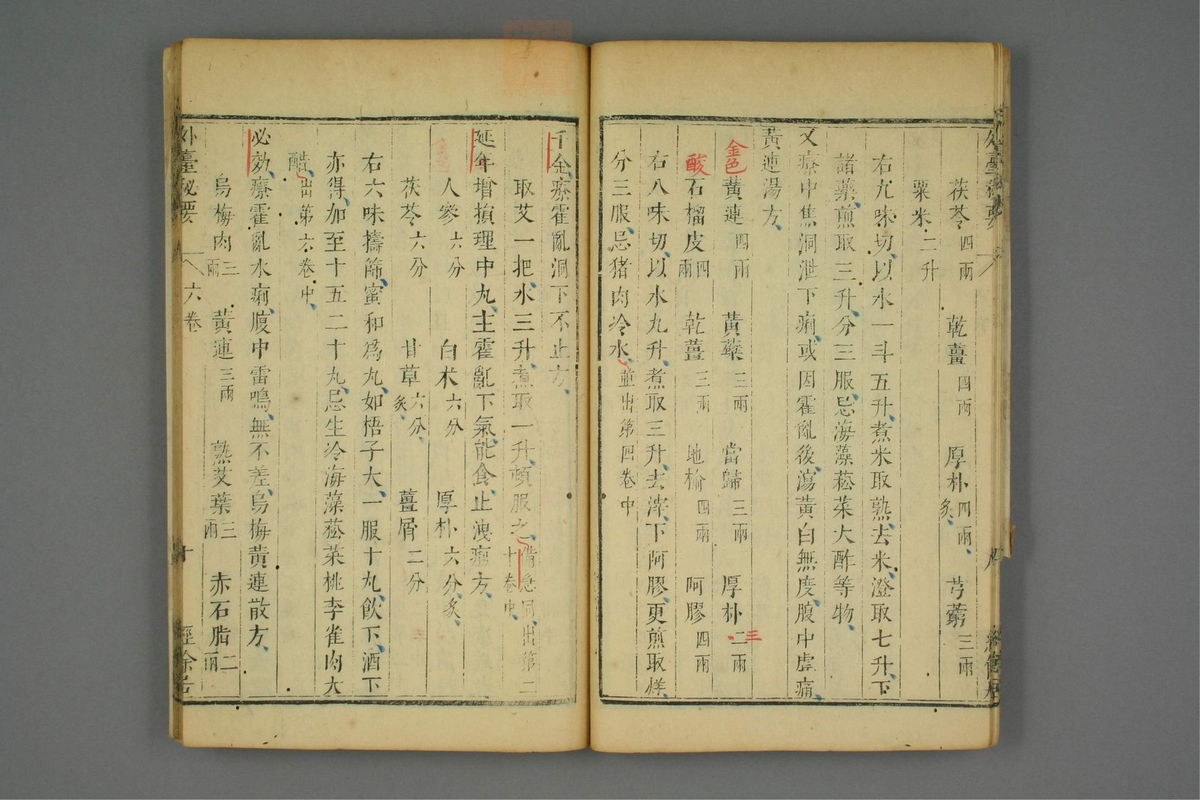 茯苓四兩 乾薑四兩 厚朴四兩炙 芎藭三兩
粟米二升
右九味切以水一斗五升煮米取熟去米澄取七升下
諸藥煎取三升分三服忌海藻菘菜大酢等物
又療中焦洞泄下痢或因霍亂後瀉黃白無度腹中虛痛
黃連湯方
金色
黃連四兩 黃蘗三兩 當歸三兩 厚朴二兩
三
酸
石榴皮四兩 乾薑三兩 地榆四兩 阿膠四兩
右八味切以水九升煮取三升去滓下阿膠更煎取烊
分三服忌猪肉冷水並出第四卷中
千金療霍亂洞下不止方
取艾一把水三升煮取一升頓服之備急同出第二十卷中
延年增損理中丸主霍亂下氣能食止洩痢方
人參六分 白朮六分 厚朴六分炙
茯苓六分 甘草六分炙 薑屑二分
右六味擣篩蜜和為丸如梧子大一服十丸飲下酒下
亦得加至十五二十丸忌生冷海藻菘菜桃李雀肉大
酢出第六卷中
必効療霍亂水痢腹中雷鳴無不差烏梅黃連散方
烏梅肉三兩 黃連三兩 熟艾葉三兩 赤石脂二兩
外臺秘要 六卷 十 經餘居